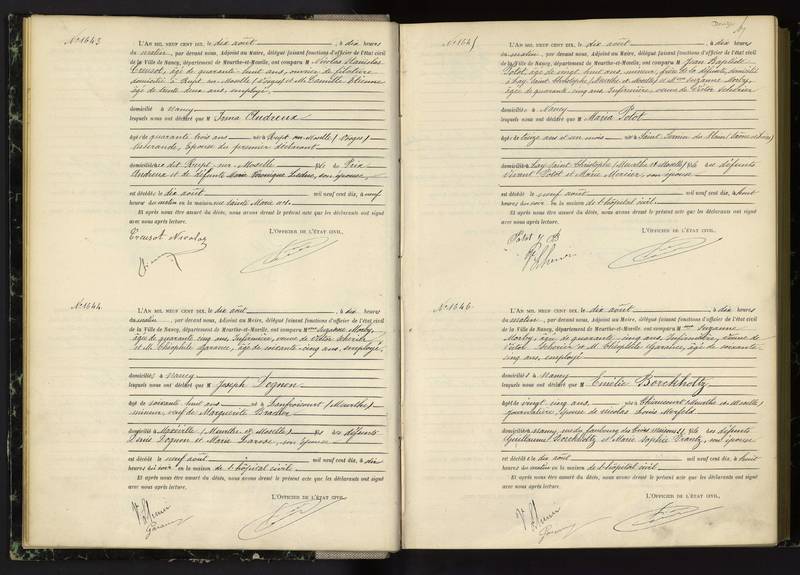 No 1643
L'AN MIL NEUF CENT DIX, le dix août, à dix heures
du matin, par devant nous, Adjoint au Maire, délégué faisant fonctions d'officier de l'état civil
de la Ville de Nancy, département de Meurthe-et-Moselle, ont comparu M Nicolas Stanislas
Creusot, âgé de quarante huit ans, ouvrier de filature
domicilié à Rupt sur Moselle (Vosges) et M Camille Etienne
âgé de trente deux ans, employé
domicilié à Nancy
lesquels nous ont déclaré que M Irma Andreux
âgée de quarante trois ans née à Rupt sur Moselle (Vosges)
tisserande, épouse du premier déclarant
domiciliée à dit Rupt sur Moselle fille de Prix
Andreux et de défunte Marie Véronique son épouse
est décédée le dix août mil neuf cent dix, à neuf
heures du matin en la maison rue Sainte Marie
Et après nous être assuré du décès, nous avons dressé le présent acte que les déclarants ont signé
avec nous après lecture.
L'OFFICIER DE L'ÉTAT CIVIL,
Creusot Nicolas
No 1644
L'AN MIL NEUF CENT DIX, le dix août, à dix heures
du matin, par devant nous, Adjoint au Maire, délégué faisant fonctions d'officier de l'état civil
de la Ville de Nancy, département de Meurthe-et-Moselle, ont comparu Mme Suzanne Morby,
âgée de quarante cinq ans infirmière, veuve de Victor
et M. Théophile Garance, âgé de soixante-cinq ans, employé
domiciliés à Nancy
lesquels nous ont déclaré que M Joseph Dognon
âgé de soixante huit ans né à Lanfroicourt (Meurthe)
mineur, veuf de Marguerite
domicilié à Maxéville (Meurthe et Moselle) fils de défunts
Denis Dognon et Marie son épouse
est décédé le neuf août mil neuf cent dix, à dix
heures du soir en la maison de l'hôpital civil
Et après nous être assuré du décès, nous avons dressé le présent acte que les déclarants ont signé
avec nous après lecture.
L'OFFICIER DE L'ÉTAT CIVIL,
No 1645
L'AN MIL NEUF CENT DIX, le dix août, à dix heures
du matin, par devant nous, Adjoint au Maire, délégué faisant fonctions d'officier de l'état civil
de la Ville de Nancy, département de Meurthe-et-Moselle, ont comparu M Jean Baptiste
Potot, âgé de vingt huit ans, mineur, frère de la défunte, domicilié
à Lay Saint Christophe (Meurthe et Moselle) et Mme Suzanne Morby,
âgée de quarante cinq ans Infirmière, veuve de Victor
domiciliée à Nancy
lesquels nous ont déclaré que M Maria Potot
âgée de treize ans et un mois née à Saint Sernin du Plain (Saône et Loire)
domiciliée à Lay Saint Christophe (Meurthe et Moselle) fille des défunts
Vivant Potot et Marie Mercier son épouse
est décédée le neuf août mil neuf cent dix, à huit
heures du soir en la maison de l'hôpital civil
Et après nous être assuré du décès, nous avons dressé le présent acte que les déclarants ont signé
avec nous après lecture.
L'OFFICIER DE L'ÉTAT CIVIL,
Potot J B
No 1646
L'AN MIL NEUF CENT DIX, le dix août, à dix heures
du matin, par devant nous, Adjoint au Maire, délégué faisant fonctions d'officier de l'état civil
de la Ville de Nancy, département de Meurthe-et-Moselle, ont comparu Mme Suzanne
Morby, âgée de quarante-cinq ans, Infirmière, veuve de
Victor et M. Théophile Garance, âgé de soixante-
cinq ans, employé
domiciliés à Nancy
lesquels nous ont déclaré que M Emélie Borchholtz
âgée de vingt cinq ans née à (Meurthe et Moselle)
journalière, épouse de Nicolas Louis
domiciliée à Nancy, rue du faubourg des trois maisons fille des défunts
Guillaume Borchholtz et Marie Sophie son épouse
est décédée le dix août mil neuf cent dix, à huit
heures du matin en la maison de l'hôpital civil
Et après nous être assuré du décès, nous avons dressé le présent acte que les déclarants ont signé
avec nous après lecture.
L'OFFICIER DE L'ÉTAT CIVIL,